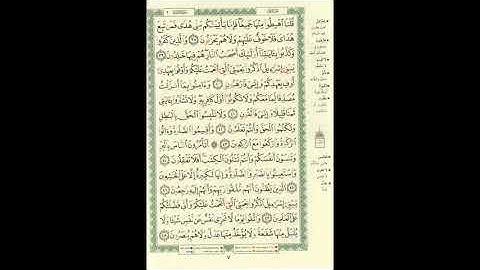 قُلْنَا ٱهْبِطُوا۟ مِنْهَا جَمِيعًا فَإِمَّا يَأْتِيَنَّكُم مِّنِّى هُدًى فَمَن تَبِعَ
هُدَاىَ فَلَا خَوْفٌ عَلَيْهِمْ وَلَا هُمْ يَحْزَنُونَ ٣٨ وَٱلَّذِينَ كَفَرُوا۟
وَكَذَّبُوا۟ بِـَٔايَٰتِنَآ أُو۟لَٰٓئِكَ أَصْحَٰبُ ٱلنَّارِ هُمْ فِيهَا خَٰلِدُونَ ٣٩
يَٰبَنِىٓ إِسْرَٰٓءِيلَ ٱذْكُرُوا۟ نِعْمَتِىَ ٱلَّتِىٓ أَنْعَمْتُ عَلَيْكُمْ وَأَوْفُوا۟ بِعَهْدِىٓ
أُوفِ بِعَهْدِكُمْ وَإِيَّٰىَ فَٱرْهَبُونِ ٤٠ وَءَامِنُوا۟ بِمَآ أَنزَلْتُ
مُصَدِّقًا لِّمَا مَعَكُمْ وَلَا تَكُونُوٓا۟ أَوَّلَ كَافِرٍۭ بِهِۦ وَلَا تَشْتَرُوا۟ بِـَٔايَٰتِى
ثَمَنًا قَلِيلًا وَإِيَّٰىَ فَٱتَّقُونِ ٤١ وَلَا تَلْبِسُوا۟ ٱلْحَقَّ بِٱلْبَٰطِلِ
وَتَكْتُمُوا۟ ٱلْحَقَّ وَأَنتُمْ تَعْلَمُونَ ٤٢ وَأَقِيمُوا۟ ٱلصَّلَوٰةَ وَءَاتُوا۟
ٱلزَّكَوٰةَ وَٱرْكَعُوا۟ مَعَ ٱلرَّٰكِعِينَ ٤٣ أَتَأْمُرُونَ ٱلنَّاسَ بِٱلْبِرِّ
وَتَنسَوْنَ أَنفُسَكُمْ وَأَنتُمْ تَتْلُونَ ٱلْكِتَٰبَ أَفَلَا تَعْقِلُونَ ٤٤
وَٱسْتَعِينُوا۟ بِٱلصَّبْرِ وَٱلصَّلَوٰةِ وَإِنَّهَا لَكَبِيرَةٌ إِلَّا عَلَى ٱلْخَٰشِعِينَ
٤٥ ٱلَّذِينَ يَظُنُّونَ أَنَّهُم مُّلَٰقُوا۟ رَبِّهِمْ وَأَنَّهُمْ إِلَيْهِ رَٰجِعُونَ ٤٦
يَٰبَنِىٓ إِسْرَٰٓءِيلَ ٱذْكُرُوا۟ نِعْمَتِىَ ٱلَّتِىٓ أَنْعَمْتُ عَلَيْكُمْ وَأَنِّى فَضَّلْتُكُمْ
عَلَى ٱلْعَٰلَمِينَ ٤٧ وَٱتَّقُوا۟ يَوْمًا لَّا تَجْزِى نَفْسٌ عَن نَّفْسٍ شَيْـًٔا وَلَا
يُقْبَلُ مِنْهَا شَفَٰعَةٌ وَلَا يُؤْخَذُ مِنْهَا عَدْلٌ وَلَا هُمْ يُنصَرُونَ ٤٨
٧